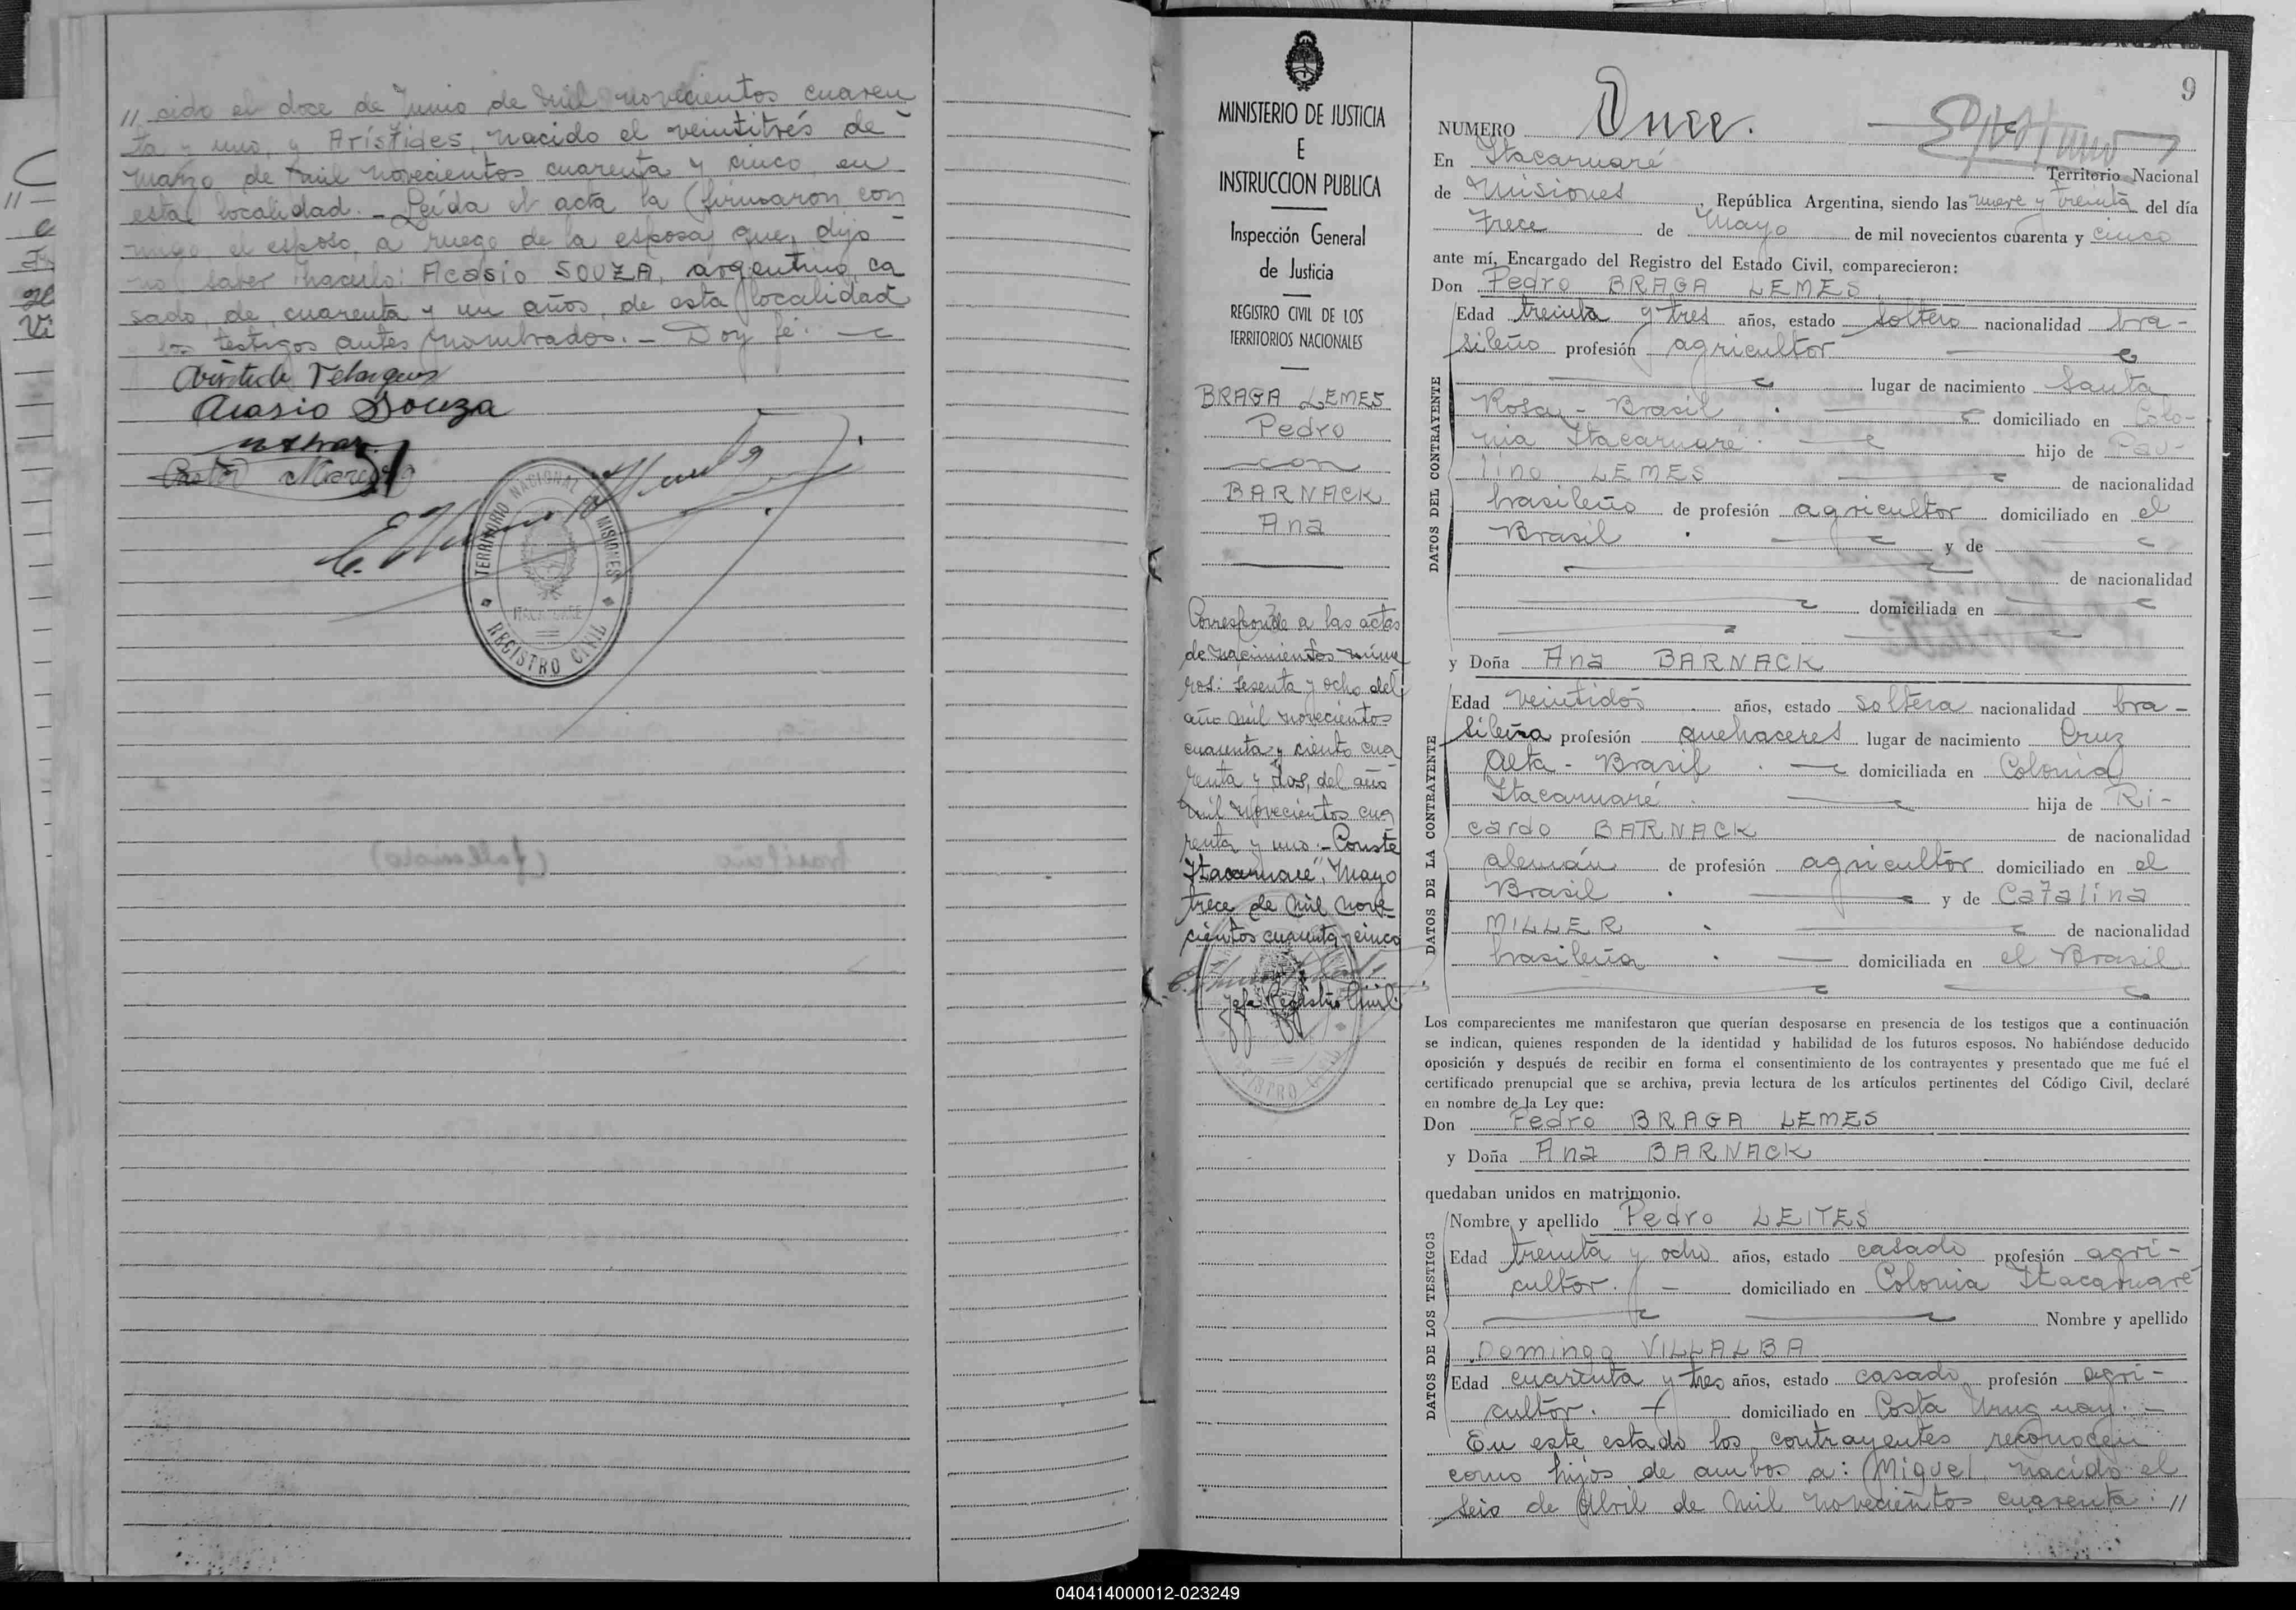 // cido el doce de Junio de mil novecientos cuaren
ta y uno, y Arístides, nacido el veintitrés de
Marzo de mil novecientos cuarenta y cinco, en
esta localidad. - Leída el acta la firmaron con
migo el esposo, a ruego de la esposa que dijo
no saber hacerlo: Acasio SOUZA, argentino, ca
sado, de cuarenta y un años, de esta localidad
los testigos antes nombrados. - Doy fé. -
Acasio Souza
TERRITORIO NACIONAL MISIONES
REGISTRO CIVIL
MINISTERIO DE JUSTICIA
E
INSTRUCCION PUBLICA
Inspección General
de Justicia
REGISTRO CIVIL DE LOS
TERRITORIOS NACIONALES
BRAGA LEMES
Pedro
con
BARNACK
Ana
Corresponde a las actas
de nacimientos núme
ros: sesenta y ocho del
año mil novecientos
cuarenta y ciento cua
renta y dos, del año
mil novecientos cua
renta y uno. - Conste
Itacaruaré, Mayo
trece de mil nove-
cientos cuarenta y cinco
Jefe Registro Civil
9
NUMERO Once.
En Itacaruaré Territorio Nacional
de Misiones, República Argentina, siendo las nueve y treinta del día
trece de Mayo de mil novecientos cuarenta y cinco
ante mí, Encargado del Registro del Estado Civil, comparecieron:
Don Pedro BRAGA LEMES
DATOS DEL CONTRAYENTE
Edad treinta y tres años, estado soltero nacionalidad bra-
sileño profesión agricultor
lugar de nacimiento Santa
Rosa - Brasil. domiciliado en Colo-
nia Itacaruaré. hijo de Pau-
lino LEMES de nacionalidad
brasileño de profesión agricultor domiciliado en el
Brasil. y de
de nacionalidad
domiciliada en
y Doña Ana BARNACK
DATOS DE LA CONTRAYENTE
Edad veintidós años, estado soltera nacionalidad bra-
sileña profesión quehaceres lugar de nacimiento Cruz
Alta - Brasil. domiciliada en Colonia
Itacaruaré. hija de Ri-
cardo BARNACK de nacionalidad
alemán de profesión agricultor domiciliado en el
Brasil. y de Catalina
MILLER. de nacionalidad
brasileña. domiciliada en el Brasil
Los comparecientes me manifestaron que querían desposarse en presencia de los testigos que a continuación
se indican, quienes responden de la identidad y habilidad de los futuros esposos. No habiéndose deducido
oposición y después de recibir en forma el consentimiento de los contrayentes y presentado que me fué el
certificado prenupcial que se archiva, previa lectura de los artículos pertinentes del Código Civil, declaré
en nombre de la Ley que:
Don Pedro BRAGA LEMES
y Doña Ana BARNACK
quedaban unidos en matrimonio.
DATOS DE LOS TESTIGOS
Nombre y apellido Pedro LEITES
Edad treinta y ocho años, estado casado profesión agri-
cultor. - domiciliado en Colonia Itacaruaré
Nombre y apellido
Domingo VILLALBA
Edad cuarenta y tres años, estado casado profesión agri-
cultor. domiciliado en Costa Uruguay. -
En este estado los contrayentes reconocen
como hijos de ambos a: Miguel, nacido el
seis de Abril de mil novecientos cuarenta: //
040414000012-023249